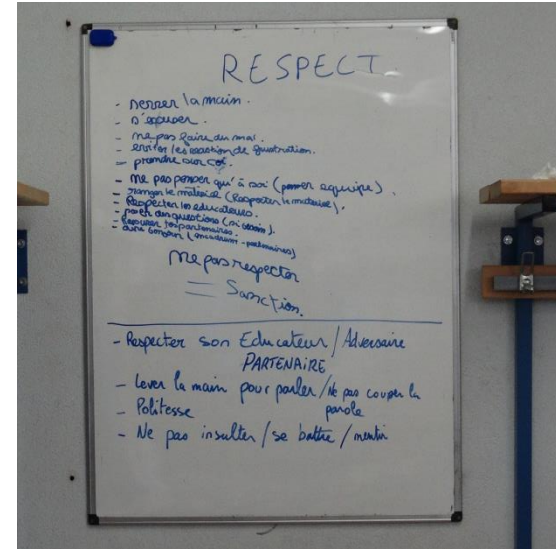 RESPECT.
- serrer la main.
- s'excuser.
- ne pas faire du mal.
- éviter les réaction de frustration.
- prendre sur soi.
- ne pas penser qu'à soi (penser equipe).
- ranger le matériel (Respecter le materiel).
- Respecter les educateurs.
- poser des questions (si besoin).
- Rassurer ses partenaires.
- dire bonjour (encadrem - partenaires)
ne pas respecter
= Sanction.
- Respecter son Educateur / Adversaire
PARTENAIRE
- Lever la main pour parler / Ne pas couper la
parole
- Politesse
- Ne pas insulter / se battre / mentir